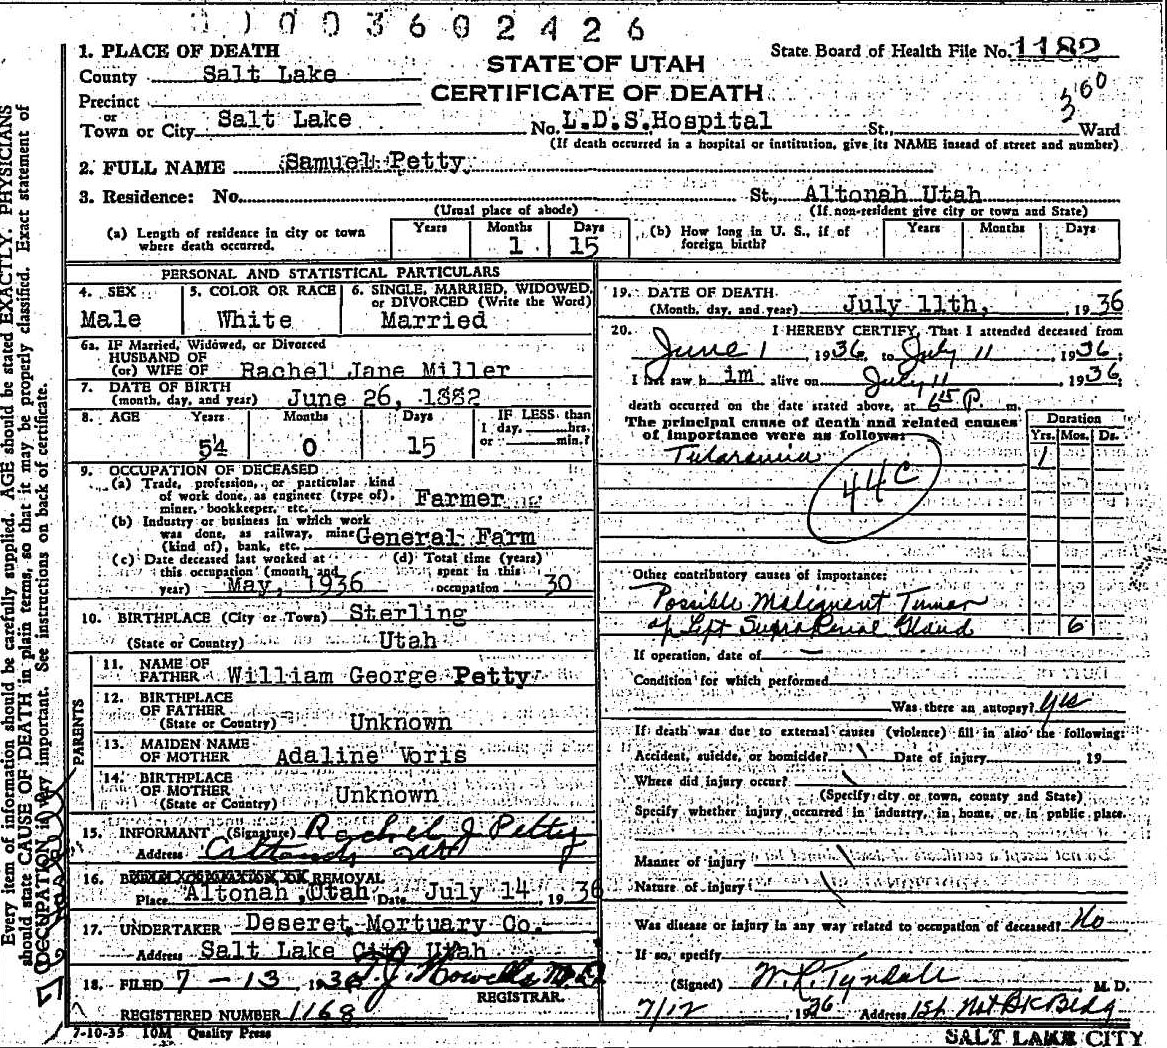 1003602426
1. PLACE OF DEATH
County Salt Lake
Precinct
or
Town or City Salt Lake
STATE OF UTAH
CERTIFICATE OF DEATH
State Board of Health File No. 1182
360
No. L.D.S. Hospital St., Ward
(If death occurred in a hospital or institution, give its NAME instead of street and number)
2. FULL NAME Samuel Petty
3. Residence: No. St., Altonah Utah
(Usual place of abode) (If non-resident give city or town and State)
(a) Length of residence in city or town where death occurred. Years Months 1 Days 15
(b) How long in U. S., if of foreign birth? Years Months Days
PERSONAL AND STATISTICAL PARTICULARS
4. SEX Male
5. COLOR OR RACE White
6. SINGLE, MARRIED, WIDOWED, or DIVORCED (Write the Word) Married
6a. IF Married, Widowed, or Divorced
HUSBAND OF
(or) WIFE OF Rachel Jane Miller
7. DATE OF BIRTH
(month, day, and year) June 26, 1882
8. AGE Years 54 Months 0 Days 15 IF LESS than 1 day, hrs. or min.?
9. OCCUPATION OF DECEASED
(a) Trade, profession, or particular kind
of work done, as engineer (type of),
miner, bookkeeper, etc. Farmer
(b) Industry or business in which work
was done, as railway, mine
(kind of), bank, etc. General Farm
(c) Date deceased last worked at
this occupation (month and
year) May, 1936
(d) Total time (years)
spent in this
occupation 30
10. BIRTHPLACE (City or Town) Sterling
(State or Country) Utah
PARENTS
11. NAME OF
FATHER William George Petty
12. BIRTHPLACE
OF FATHER
(State or Country) Unknown
13. MAIDEN NAME
OF MOTHER Adaline Voris
14. BIRTHPLACE
OF MOTHER
(State or Country) Unknown
15. INFORMANT (Signature) Rachel J Petty
Address
16. REMOVAL
Place Altonah, Utah Date July 14, 1936
17. UNDERTAKER Deseret Mortuary Co.
Address Salt Lake City Utah
18. FILED 7-13, 1936
REGISTRAR.
REGISTERED NUMBER 1168
7-10-35 10M Quality Press
19. DATE OF DEATH
(Month, day, and year) July 11th, 1936
20. I HEREBY CERTIFY, That I attended deceased from
June 1, 1936, to July 11, 1936;
I last saw him alive on July 11, 1936
death occurred on the date stated above, at 6 15 P. m.
The principal cause of death and related causes
of importance were as follows:
Duration
Yrs. Mos. Ds.
Tularemia 1
44C
Other contributory causes of importance:
Possible Malignent Tumor
of Left SupraRenal Gland 6
If operation, date of
Condition for which performed
Was there an autopsy? Yes
If death was due to external causes (violence) fill in also the following:
Accident, suicide, or homicide? Date of injury , 19
Where did injury occur?
(Specify city or town, county and State)
Specify whether injury occurred in industry, in home, or in public place.
Manner of injury
Nature of injury
Was disease or injury in any way related to occupation of deceased? No
If so, specify
(Signed) W. R. Tyndale M. D.
7/12 1936 Address 1st Nat BK Bldg
SALT LAKE CITY
Every item of information should be carefully supplied. AGE should be stated EXACTLY. PHYSICIANS
should state CAUSE OF DEATH in plain terms, so that it may be properly classified. Exact statement of
OCCUPATION is very important. See instructions on back of certificate.